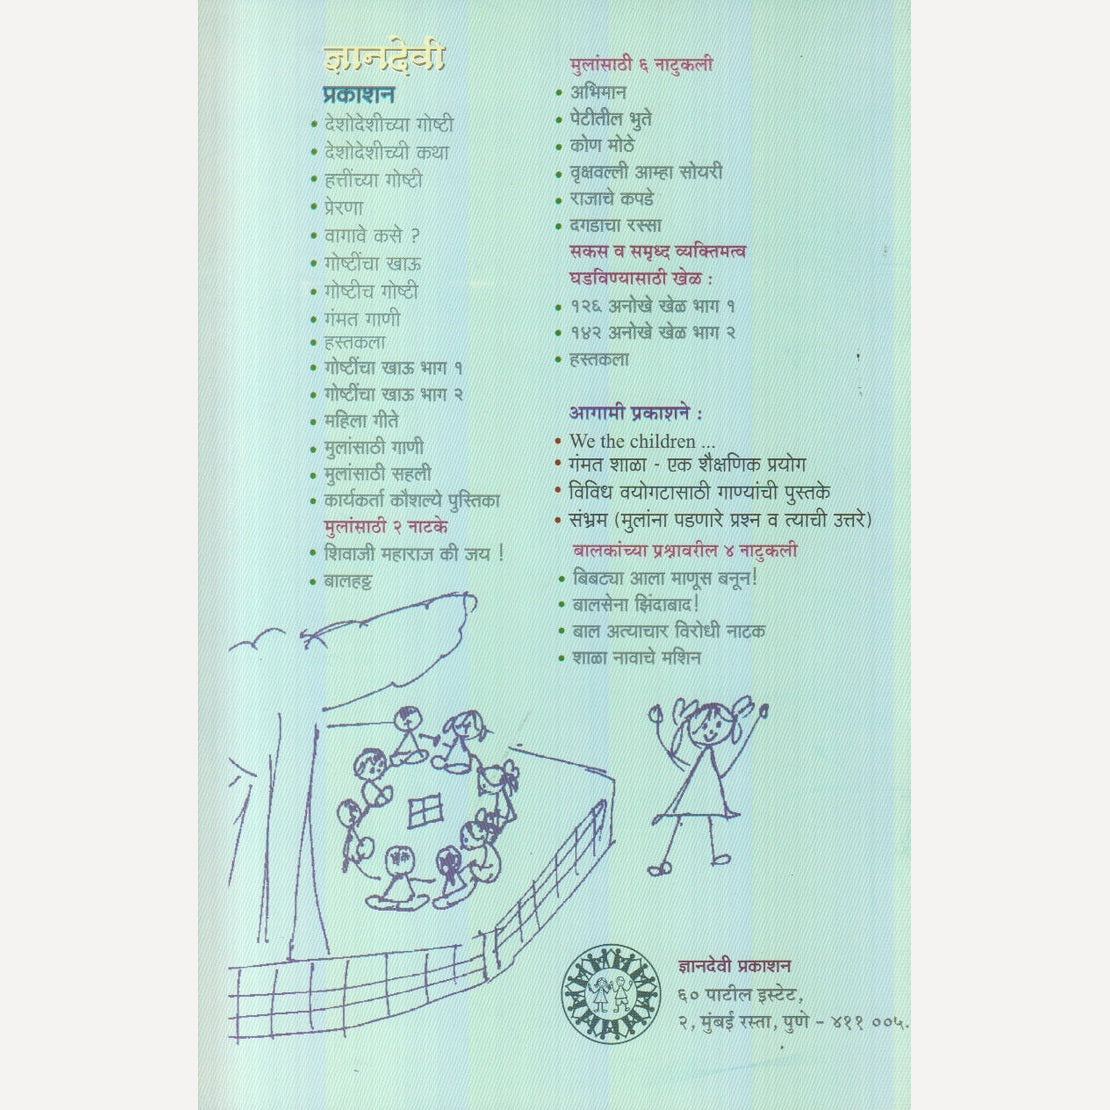 ज्ञानदेवी
प्रकाशन
• देशोदेशीच्या गोष्टी
• देशोदेशीच्यी कथा
• हत्तींच्या गोष्टी
• प्रेरणा
• वागावे कसे ?
• गोष्टींचा खाऊ
• गोष्टीच गोष्टी
• गंमत गाणी
• हस्तकला
• गोष्टींचा खाऊ भाग १
• गोष्टींचा खाऊ भाग २
• महिला गीते
• मुलांसाठी गाणी
• मुलांसाठी सहली
• कार्यकर्ता कौशल्ये पुस्तिका
मुलांसाठी २ नाटके
• शिवाजी महाराज की जय !
• बालहट्ट
मुलांसाठी ६ नाटुकली
• अभिमान
• पेटीतील भुते
• कोण मोठे
• वृक्षवल्ली आम्हा सोयरी
• राजाचे कपडे
• दगडाचा रस्सा
सकस व समृध्द व्यक्तिमत्व
घडविण्यासाठी खेळ :
• १२६ अनोखे खेळ भाग १
• १४२ अनोखे खेळ भाग २
• हस्तकला
आगामी प्रकाशने :
• We the children ...
• गंमत शाळा - एक शैक्षणिक प्रयोग
• विविध वयोगटासाठी गाण्यांची पुस्तके
• संभ्रम (मुलांना पडणारे प्रश्न व त्याची उत्तरे)
बालकांच्या प्रश्नावरील ४ नाटुकली
• बिबट्या आला माणूस बनून!
• बालसेना झिंदाबाद!
• बाल अत्याचार विरोधी नाटक
• शाळा नावाचे मशिन
ज्ञानदेवी प्रकाशन
६० पाटील इस्टेट,
२, मुंबई रस्ता, पुणे - ४११ ००५.